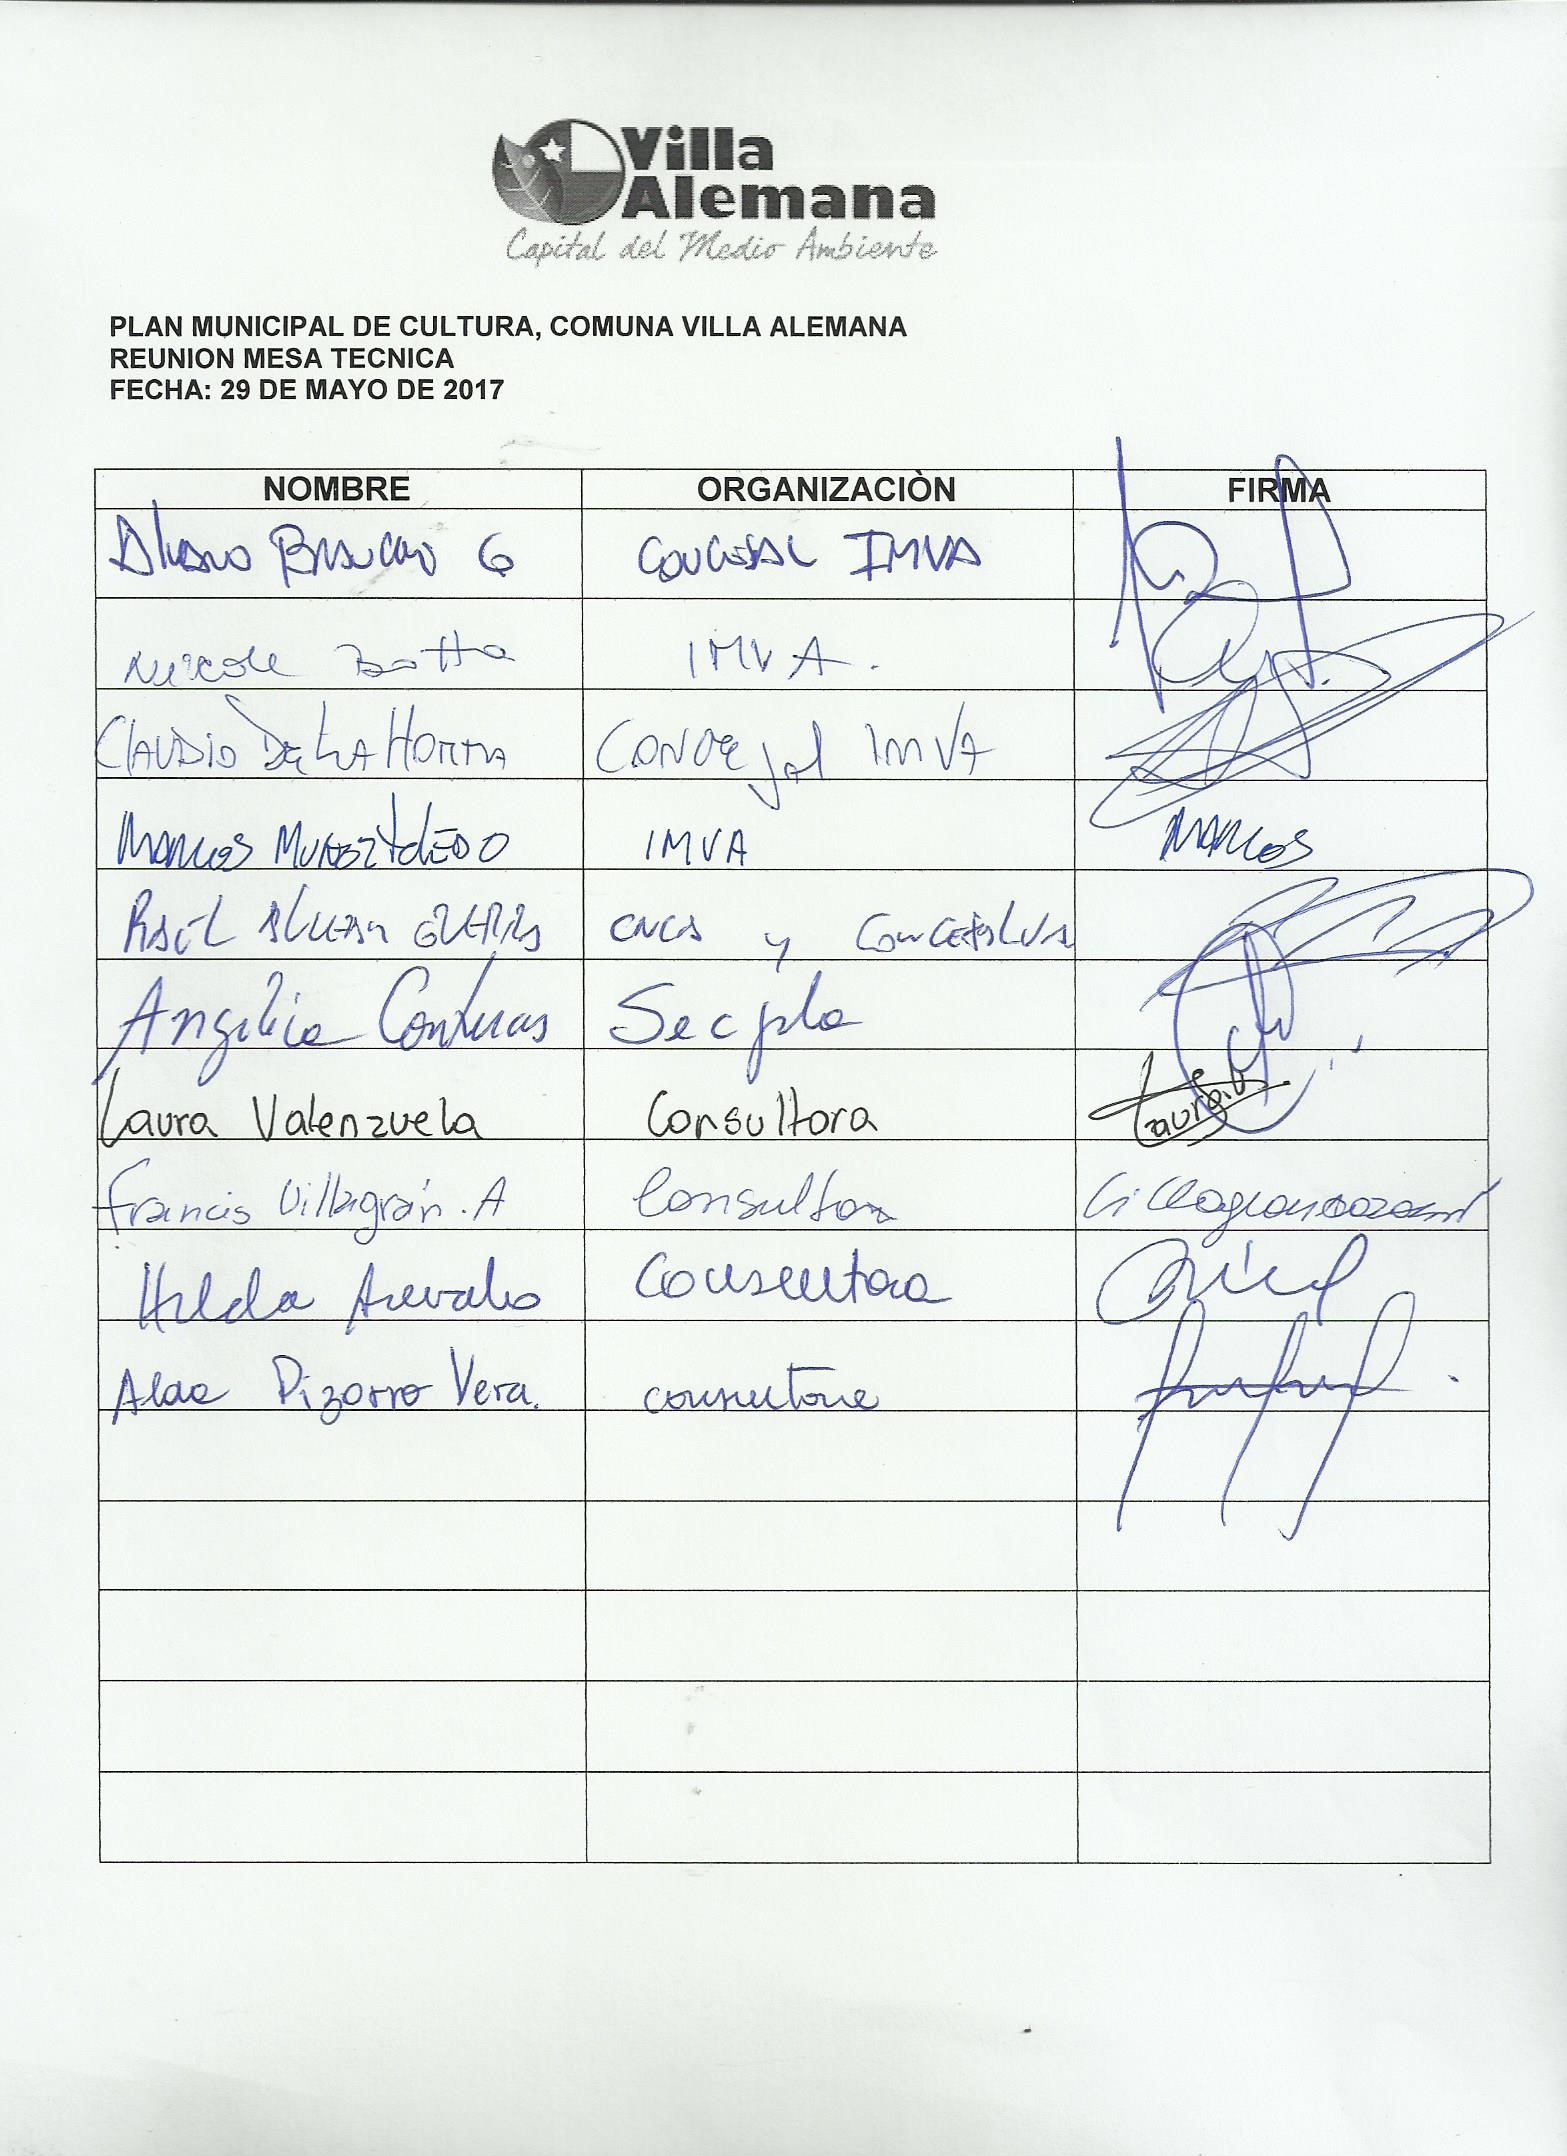 Villa
Alemana
Capital del Medio Ambiente
PLAN MUNICIPAL DE CULTURA, COMUNA VILLA ALEMANA
REUNION MESA TECNICA
FECHA: 29 DE MAYO DE 2017
NOMBRE ORGANIZACIÒN FIRMA
G CONCEJAL IMVA
Nicole Botta IMVA.
CLAUDIO DE LA HORRA CONCEJAL IMVA
MARCOS MUÑOZ TOLEDO IMVA MARCOS
CNCA y
Angélica Contreras Secpla
Laura Valenzuela Consultora Laura.V
Francis Villagrán.A Consultora
Hilda Arevalo Consultora
Alda Pizarro Vera. consultora